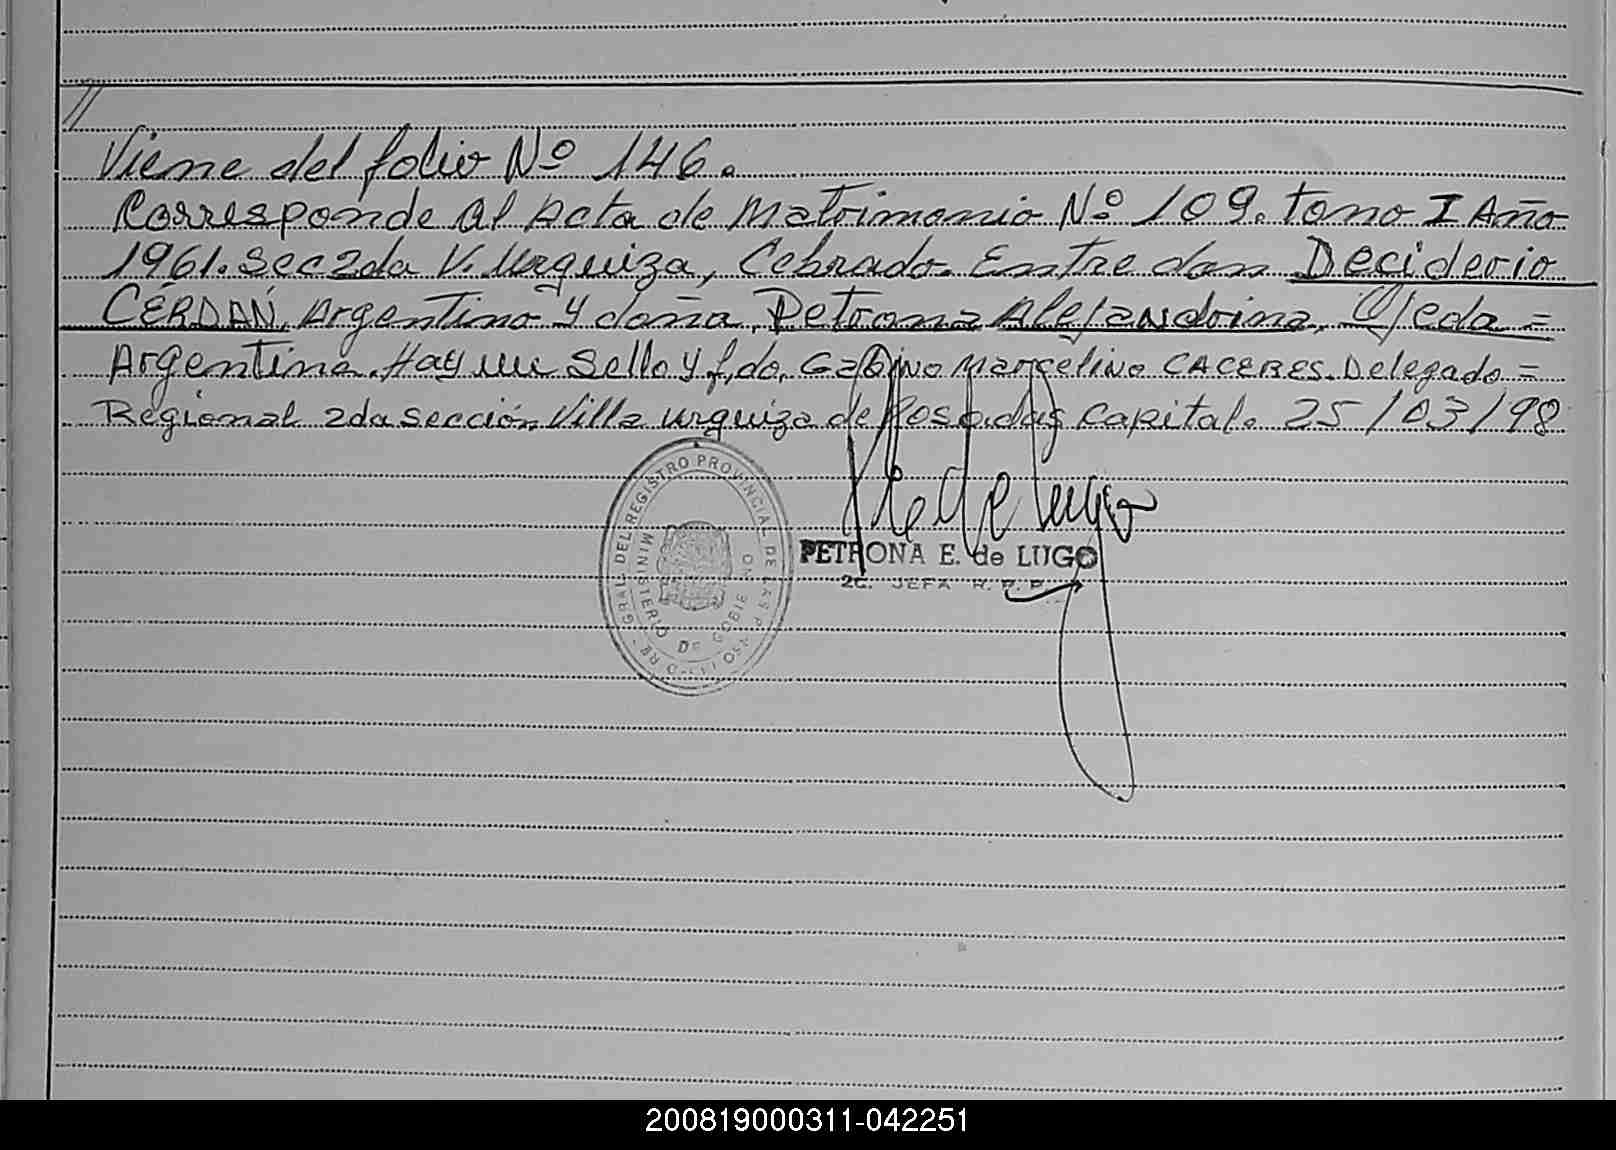 //
Viene del folio Nº 146.
Corresponde al Acta de Matrimonio Nº 109. tomo I Año
1961. Sec 2da V. Urquiza, Cebrado. Entre don Deciderio
CERDAN, Argentino y doña, Petrona Alejandrina, Ojeda =
Argentina. Hay un Sello y f,do, Gabino Marcelino CACERES. Delegado =
Regional 2da sección Villa Urquiza de Posadas Capital. 25/03/98
de Lugo
PETRONA E. de LUGO
2C. JEFA R. P. P.
GRAL. DEL REGISTRO PROVINCIAL DE LAS P
MINISTERIO DE GOBIERNO
200819000311-042251